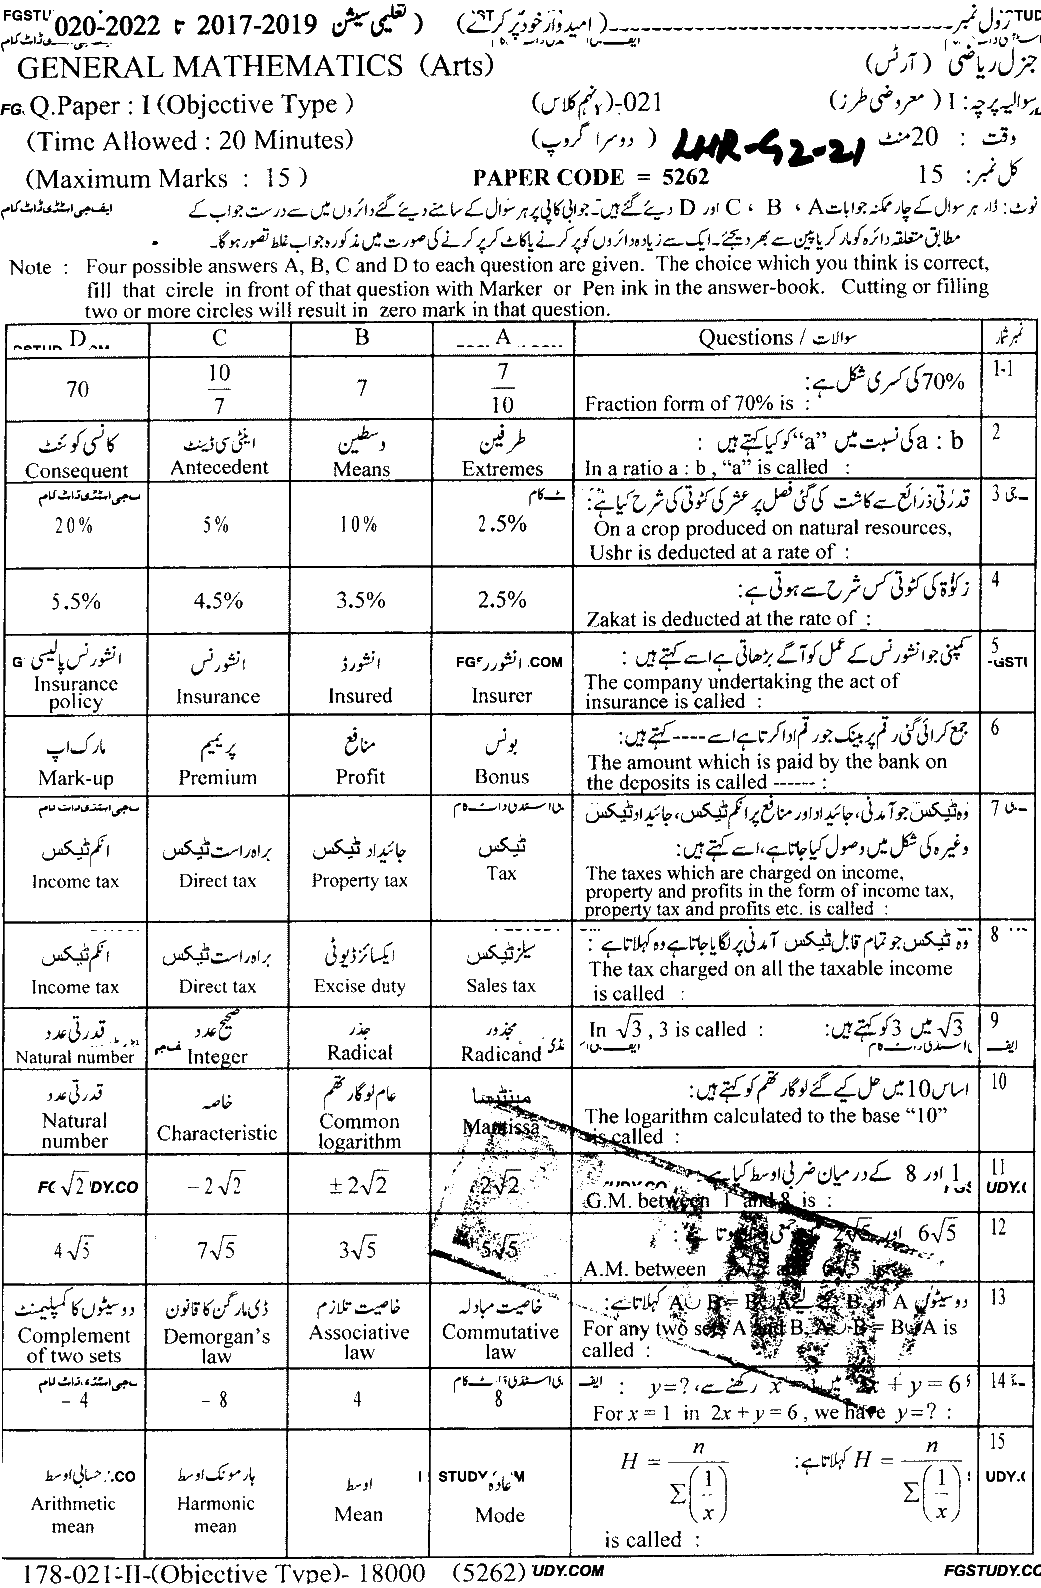 رول نمبر ( امیدوار خود پُر کرے ) ( تعلیمی سیشن 2017-2019 تا 020-2022
GENERAL MATHEMATICS (Arts) جنرل ریاضی ( آرٹس )
Q.Paper : I (Objective Type ) 021-(نہم کلاس) سوالیہ پرچہ : I ( معروضی طرز )
(Time Allowed : 20 Minutes) ( دوسرا گروپ ) LHR-G2-21 وقت : 20 منٹ
(Maximum Marks : 15 ) PAPER CODE = 5262 کل نمبر : 15
نوٹ : ہر سوال کے چار ممکنہ جوابات A ، B ، C اور D دیئے گئے ہیں۔ جوابی کاپی پر ہر سوال کے سامنے دیئے گئے دائروں میں سے درست جواب کے
مطابق متعلقہ دائرہ کو مارکر یا پین سے بھر دیجئے۔ ایک سے زیادہ دائروں کو پُر کرنے یا کاٹ کر پُر کرنے کی صورت میں مذکورہ جواب غلط تصور ہوگا۔
Note : Four possible answers A, B, C and D to each question are given. The choice which you think is correct,
fill that circle in front of that question with Marker or Pen ink in the answer-book. Cutting or filling
two or more circles will result in zero mark in that question.
D C B A Questions / سوالات نمبر شمار
70 10/7 7 7/10 70% کی کسری شکل ہے : 1-1
Fraction form of 70% is :
کانسی کوئنٹ اینٹی سی ڈینٹ وسطین طرفین a : b کی نسبت میں "a" کو کیا کہتے ہیں : 2
Consequent Antecedent Means Extremes In a ratio a : b , "a" is called :
قدرتی ذرائع سے کاشت کی گئی فصل پر عشر کی کٹوتی کی شرح کیا ہے : 3
20% 5% 10% 2.5% On a crop produced on natural resources,
Ushr is deducted at a rate of :
زکوٰۃ کی کٹوتی کس شرح سے ہوتی ہے : 4
5.5% 4.5% 3.5% 2.5% Zakat is deducted at the rate of :
انشورنس پالیسی انشورنس انشورڈ انشورر کمپنی جو انشورنس کے عمل کو آگے بڑھاتی ہے اسے کہتے ہیں : 5
Insurance policy Insurance Insured Insurer The company undertaking the act of
insurance is called :
مارک اپ پریمیم منافع بونس جمع کرائی گئی رقم پر بینک جو رقم ادا کرتا ہے اسے ---- کہتے ہیں : 6
Mark-up Premium Profit Bonus The amount which is paid by the bank on
the deposits is called ------ :
وہ ٹیکس جو آمدنی، جائیداد اور منافع پر انکم ٹیکس، جائیداد ٹیکس 7
انکم ٹیکس براہ راست ٹیکس جائیداد ٹیکس ٹیکس وغیرہ کی شکل میں وصول کیا جاتا ہے، اسے کہتے ہیں :
Income tax Direct tax Property tax Tax The taxes which are charged on income,
property and profits in the form of income tax,
property tax and profits etc. is called :
انکم ٹیکس براہ راست ٹیکس ایکسائز ڈیوٹی سیلز ٹیکس وہ ٹیکس جو تمام قابل ٹیکس آمدنی پر لگایا جاتا ہے وہ کہلاتا ہے : 8
Income tax Direct tax Excise duty Sales tax The tax charged on all the taxable income
is called :
قدرتی عدد صحیح عدد جذر مجذور In √3 , 3 is called : √3 میں 3 کو کہتے ہیں : 9
Natural number Integer Radical Radicand
قدرتی عدد خاصہ عام لوگارتھم مینٹیسا اساس 10 میں حل کیے گئے لوگارتھم کو کہتے ہیں : 10
Natural number Characteristic Common logarithm Mantissa The logarithm calculated to the base "10"
is called :
√2 −2√2 ±2√2 2√2 1 اور 8 کے درمیان ضربی اوسط کیا ہے : 11
G.M. between 1 and 8 is :
4√5 7√5 3√5 5√5 6√5 اور 2√5 : 12
A.M. between 6√5 is :
دو سیٹوں کا کمپلیمنٹ ڈی مارگن کا قانون خاصیت تلازم خاصیت مبادلہ دو سیٹوں A اور B کے لیے A∪B = B∪A کہلاتا ہے : 13
Complement of two sets Demorgan's law Associative law Commutative law For any two sets A and B, A∪B = B∪A is
called :
- 4 - 8 4 8 2x + y = 6 میں x = 1 رکھنے سے، y=? : 14
For x = 1 in 2x + y = 6 , we have y=? :
حسابی اوسط ہارمونک اوسط اوسط عادہ H = n / Σ(1/x) کہلاتا ہے : H = n / Σ(1/x) 15
Arithmetic mean Harmonic mean Mean Mode is called :
178-021-II-(Objective Type)- 18000 (5262) UDY.COM FGSTUDY.CO